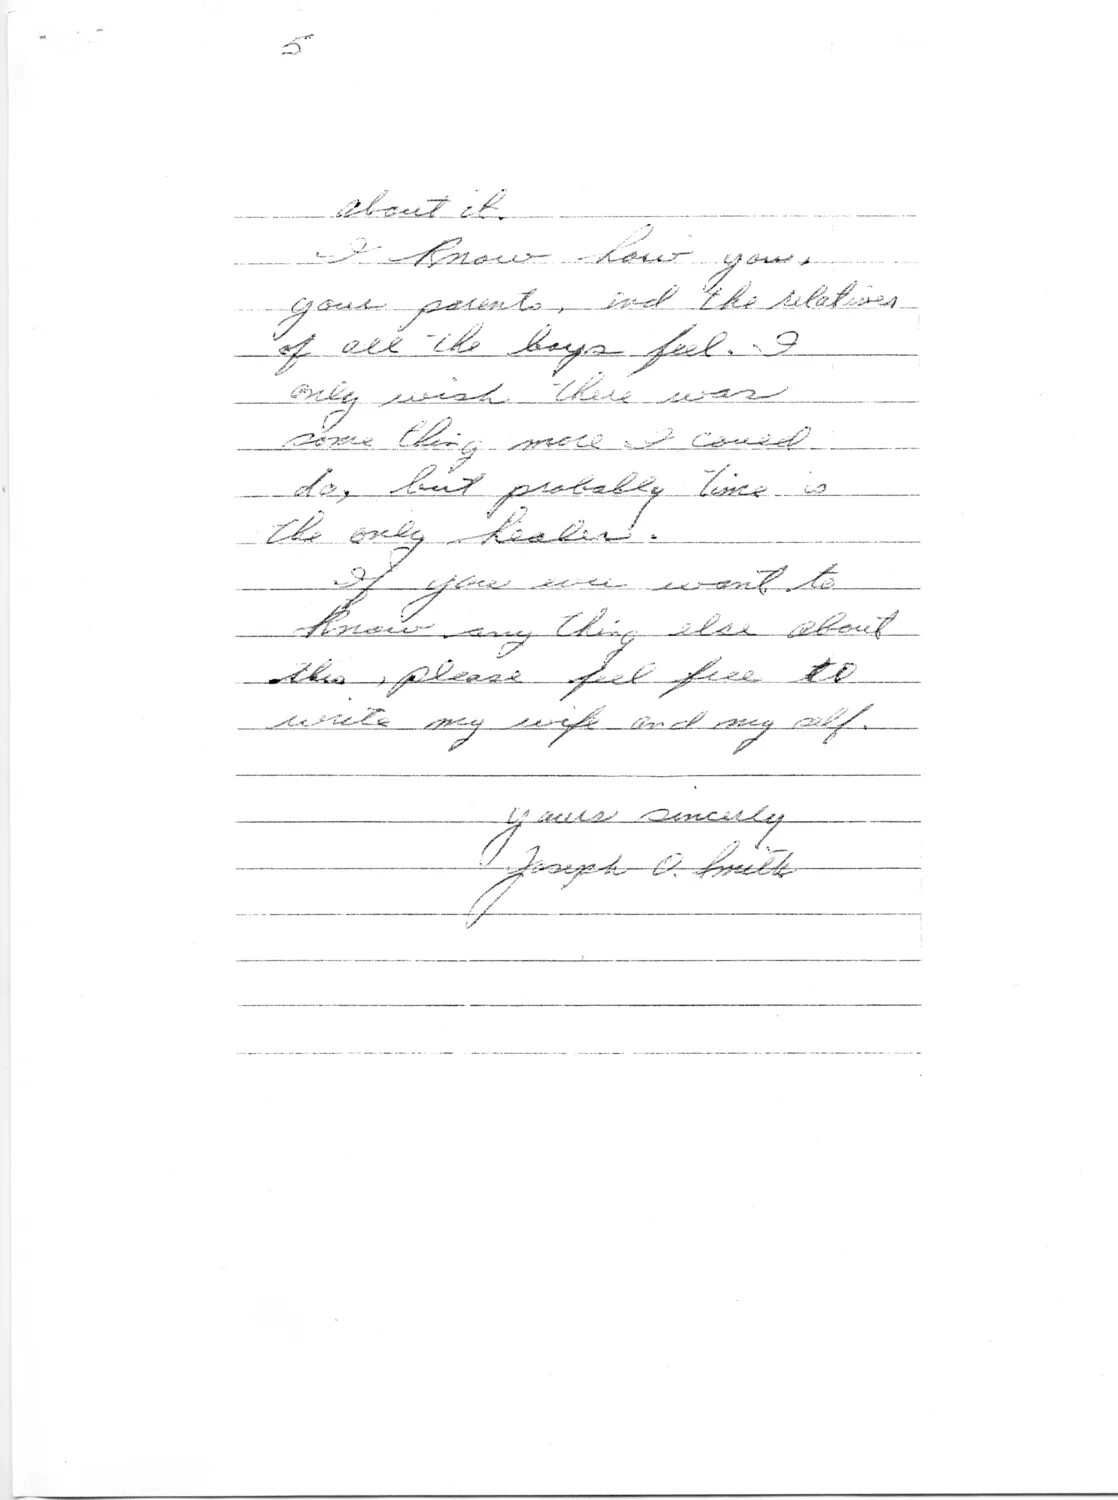 5
about it.
I know how you,
your parents, and the relatives
of all the boys feel. I
only wish there was
some thing more I could
do, but probably time is
the only healer.
If you ever want to
know any thing else about
this, please feel free to
write my wife and my self.
yours sincerly
Joseph O. Smith